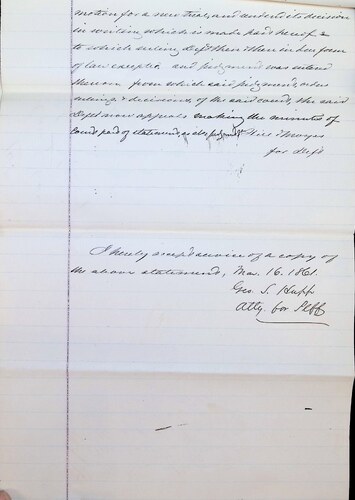 motion for a new trial, and rendered its decision
in writing which is made part hereof &
to which ruling Deft then & there in due form
of law excepted and judgment was entered
thereon from which said judgment, orders
rulings & decisions, of the said court, the said
Deft now appeals making the minutes of
court part of statement, as also judgment
for Deft
I hereby accept service of a copy of
the above statement, Mar. 16. 1861.
Geo. S. Hupp
Atty for Plff